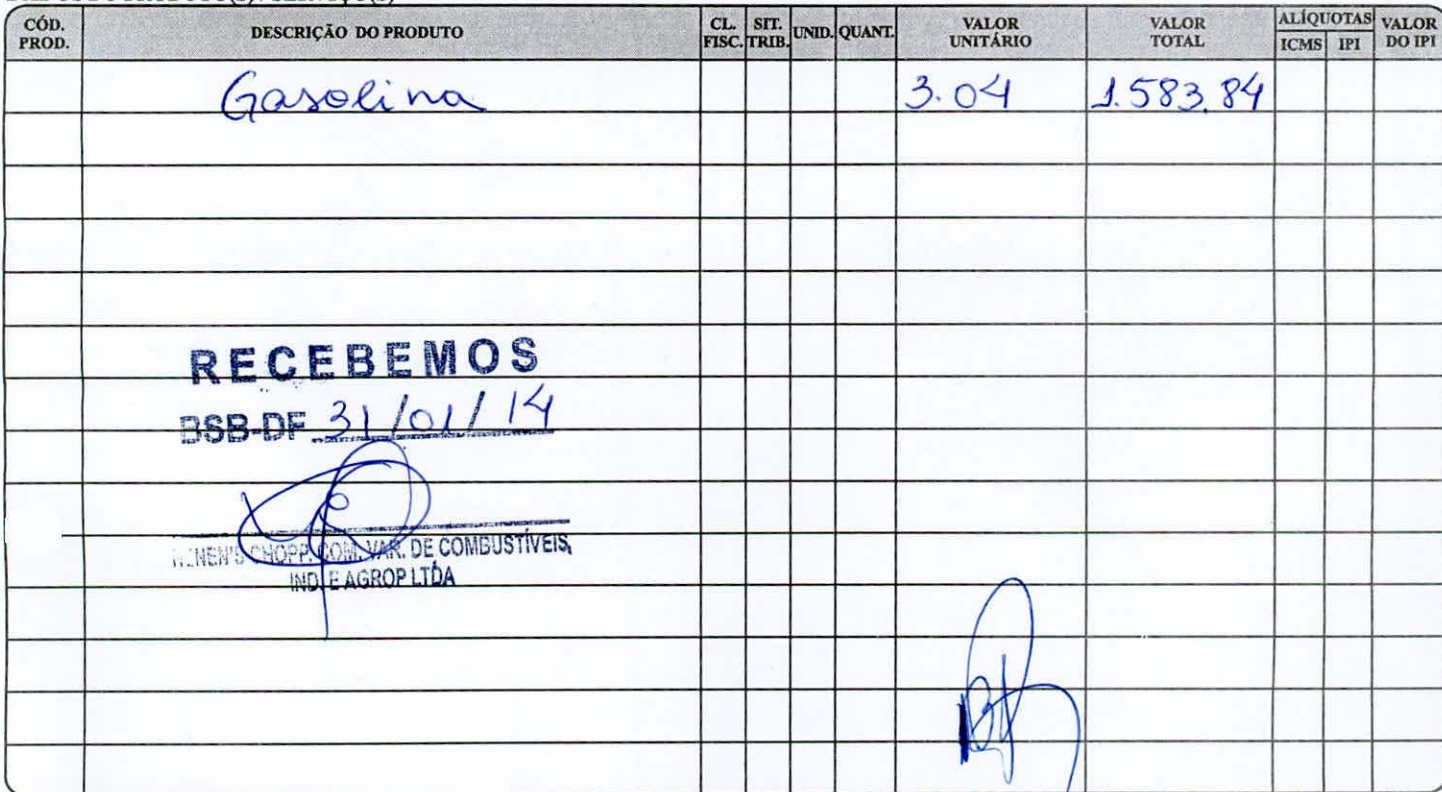 CÓD. PROD. DESCRIÇÃO DO PRODUTO CL. FISC. SIT. TRIB. UNID. QUANT. VALOR UNITÁRIO VALOR TOTAL ALÍQUOTAS ICMS IPI VALOR DO IPI
Gasolina 3.04 1.583.84
RECEBEMOS
BSB-DF 31/01/14
CHOPP. COM. VAR. DE COMBUSTÍVEIS,
IND. E AGROP LTDA